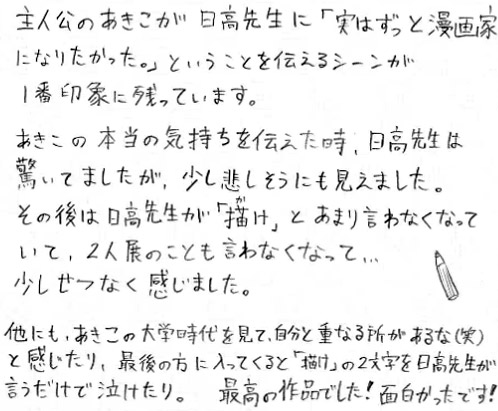 主人公のあきこが日高先生に「実はずっと漫画家
になりたかった。」ということを伝えるシーンが
1番印象に残っています。
あきこの本当の気持ちを伝えた時、日高先生は
驚いてましたが、少し悲しそうにも見えました。
その後は日高先生が「描け」とあまり言わなくなって
いて、2人展のことも言わなくなって…
少しせつなく感じました。
他にも、あきこの大学時代を見て、自分と重なる所があるな(笑)
と感じたり、最後の方に入ってくると「描け」の2文字を日高先生が
言うだけで泣けたり。 最高の作品でした!面白かったです!